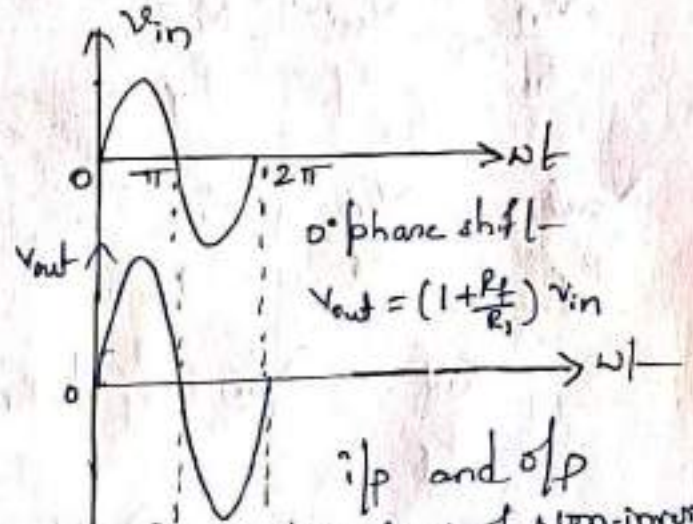 Vin
0 π 2π ωt
0° phase shift
Vout
Vout = (1 + Rf/R1) Vin
0 ωt
i/p and o/p